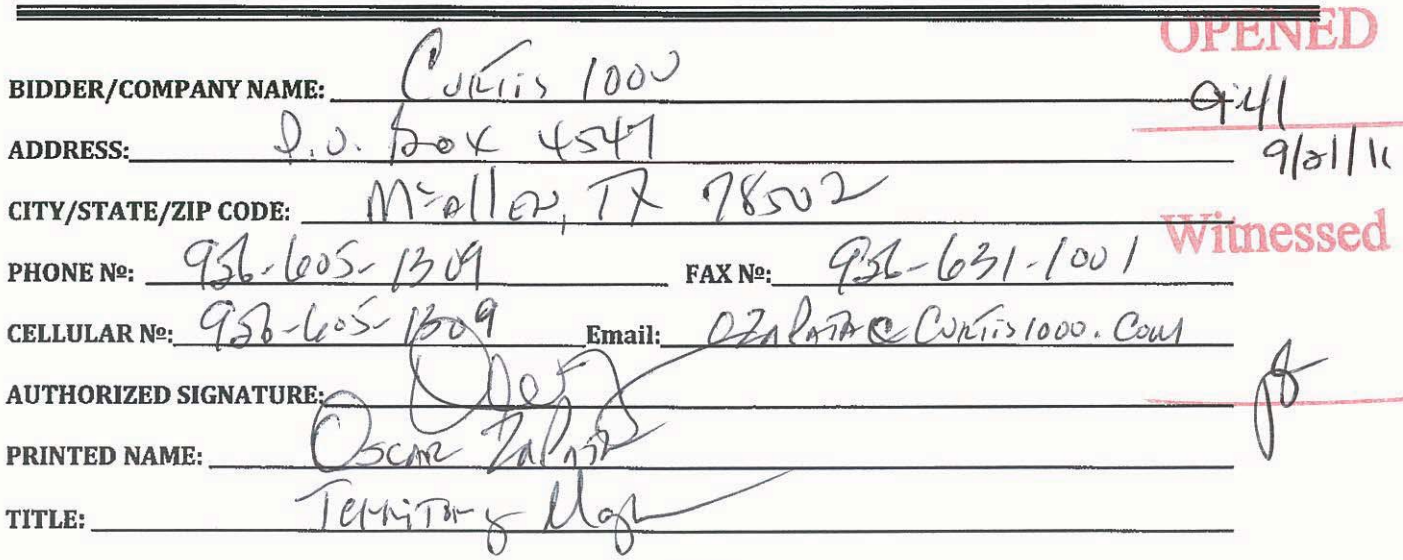 OPENED
BIDDER/COMPANY NAME: Curtis 1000
ADDRESS: P.O. Box 4547
9/21/11
CITY/STATE/ZIP CODE: McAllen, TX 78502
Witnessed
PHONE Nº: 956-605-1309 FAX Nº: 956-631-1001
CELLULAR Nº: 956-605-1309 Email: OZAPATA@CURTIS1000.COM
AUTHORIZED SIGNATURE:
PRINTED NAME: Oscar Zapata
TITLE: Territory Mgr